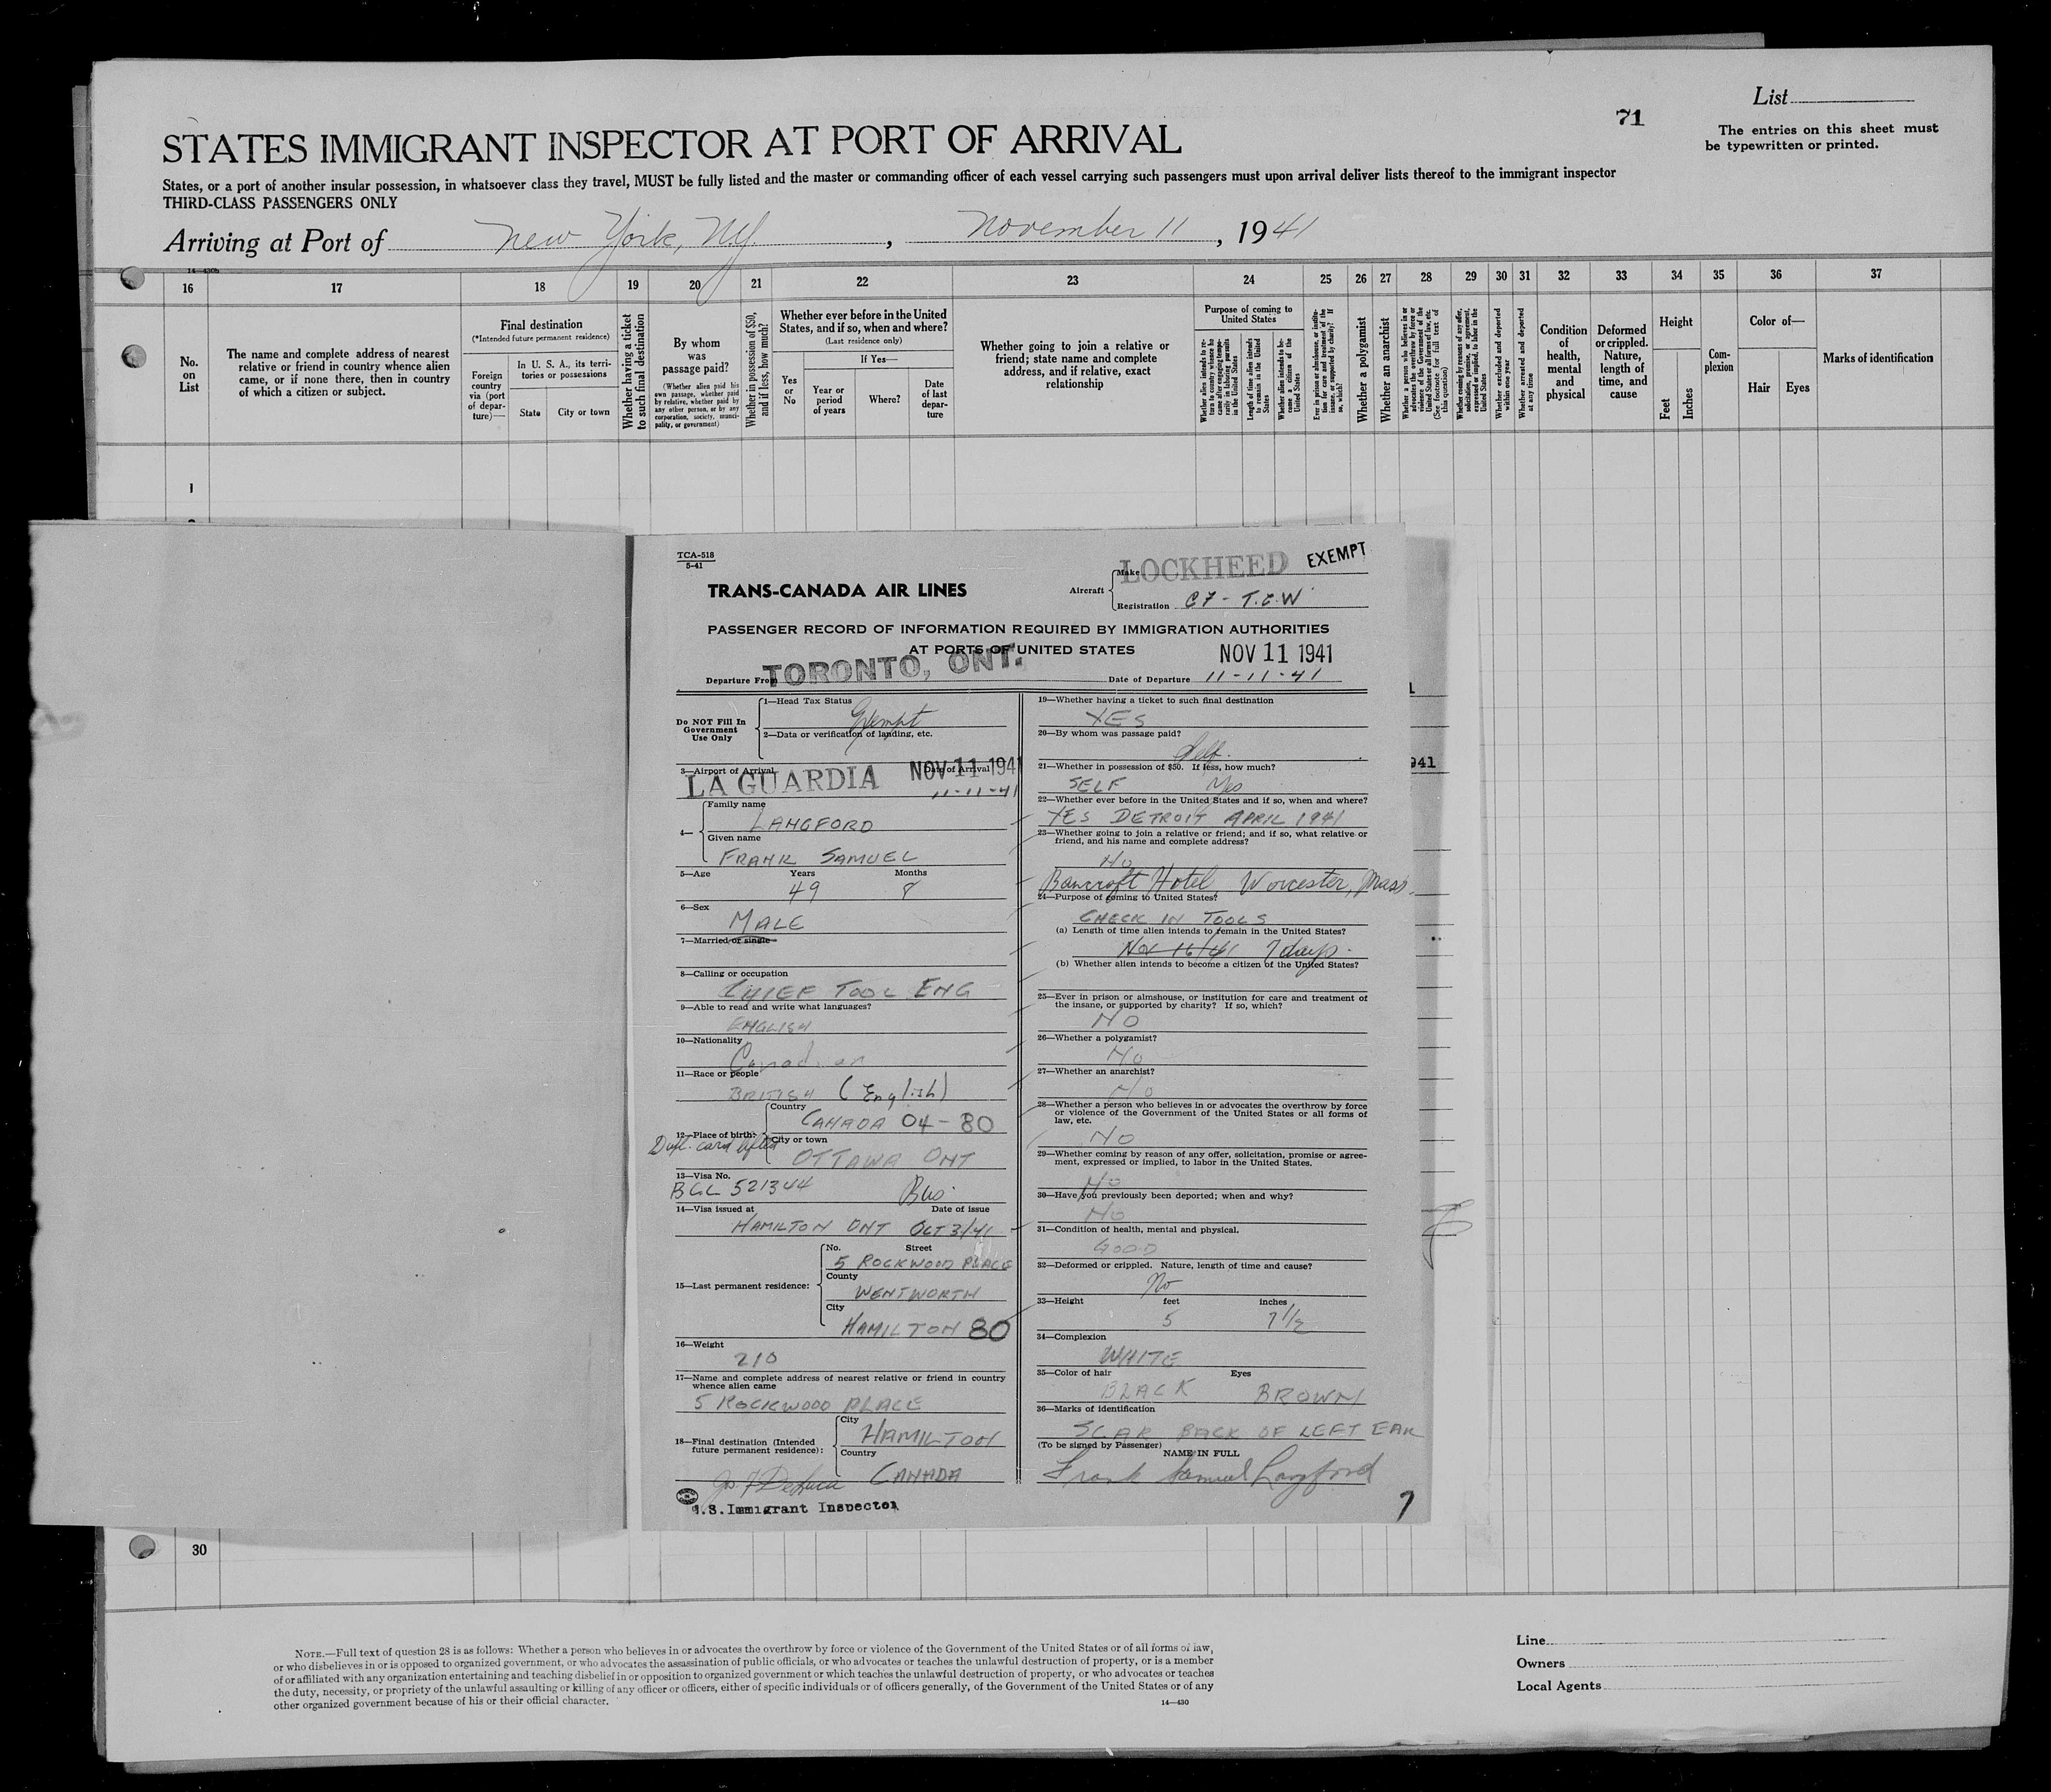 List
71
The entries on this sheet must
be typewritten or printed.
STATES IMMIGRANT INSPECTOR AT PORT OF ARRIVAL
States, or a port of another insular possession, in whatsoever class they travel, MUST be fully listed and the master or commanding officer of each vessel carrying such passengers must upon arrival deliver lists thereof to the immigrant inspector
THIRD-CLASS PASSENGERS ONLY
Arriving at Port of New York, N.Y., November 11, 1941
16 17 18 19 20 21 22 23 24 25 26 27 28 29 30 31 32 33 34 35 36 37
No.
on
List
The name and complete address of nearest
relative or friend in country whence alien
came, or if none there, then in country
of which a citizen or subject.
Final destination
(*Intended future permanent residence)
Foreign
country
via (port
of depar-
ture)—
In U. S. A., its terri-
tories or possessions
State City or town
Whether having a ticket
to such final destination
By whom
was
passage paid?
(Whether alien paid his
own passage, whether paid
by relative, whether paid by
any other person, or by any
corporation, society, munici-
pality, or government)
Whether in possession of $50,
and if less, how much?
Whether ever before in the United
States, and if so, when and where?
(Last residence only)
If Yes—
Yes
or
No
Year or
period
of years
Where?
Date
of last
depar-
ture
Whether going to join a relative or
friend; state name and complete
address, and if relative, exact
relationship
Purpose of coming to
United States
Length of time alien intends
to remain in the United
States
Whether a polygamist
Whether an anarchist
Whether excluded and deported
within one year
Whether arrested and deported
at any time
Condition
of
health,
mental
and
physical
Deformed
or crippled.
Nature,
length of
time, and
cause
Height
Feet
Inches
Com-
plexion
Color of—
Hair Eyes
Marks of identification
1
TCA-518
5-41
TRANS-CANADA AIR LINES
Aircraft
Make LOCKHEED EXEMPT
Registration CF - T.C.W
PASSENGER RECORD OF INFORMATION REQUIRED BY IMMIGRATION AUTHORITIES
AT PORTS OF UNITED STATES
NOV 11 1941
Departure From TORONTO, ONT. Date of Departure 11-11-41
Do NOT Fill In
Government
Use Only
1—Head Tax Status
Exempt
2—Data or verification of landing, etc.
3—Airport of Arrival Date of Arrival
LA GUARDIA NOV 11 1941
11-11-41
4—
Family name
LANGFORD
Given name
FRANK SAMUEL
5—Age Years Months
49 8
6—Sex
MALE
7—Married or single
8—Calling or occupation
CHIEF TOOL ENG
9—Able to read and write what languages?
ENGLISH
10—Nationality
Canadian
11—Race or people
BRITISH (English)
12—Place of birth:
Country
CANADA 04-80
City or town
OTTAWA ONT
Dupl. card lifted
13—Visa No.
BCL 521344 Bus.
14—Visa issued at Date of issue
HAMILTON ONT OCT 31/41
15—Last permanent residence:
No. Street
5 ROCKWOOD PLACE
County
WENTWORTH
City
HAMILTON 80
16—Weight
210
17—Name and complete address of nearest relative or friend in country
whence alien came
5 ROCKWOOD PLACE
18—Final destination (Intended
future permanent residence):
City
HAMILTON
Country
CANADA
U.S. Immigrant Inspector
19—Whether having a ticket to such final destination
YES
20—By whom was passage paid?
Self.
21—Whether in possession of $50. If less, how much?
SELF Yes
22—Whether ever before in the United States and if so, when and where?
YES DETROIT APRIL 1941
23—Whether going to join a relative or friend; and if so, what relative or
friend, and his name and complete address?
No
Bancroft Hotel, Worcester, Mass.
24—Purpose of coming to United States?
CHECK IN TOOLS
(a) Length of time alien intends to remain in the United States?
Nov 16/41 7 days.
(b) Whether alien intends to become a citizen of the United States?
25—Ever in prison or almshouse, or institution for care and treatment of
the insane, or supported by charity? If so, which?
NO
26—Whether a polygamist?
No
27—Whether an anarchist?
No
28—Whether a person who believes in or advocates the overthrow by force
or violence of the Government of the United States or all forms of
law, etc.
NO
29—Whether coming by reason of any offer, solicitation, promise or agree-
ment, expressed or implied, to labor in the United States.
No
30—Have you previously been deported; when and why?
NO
31—Condition of health, mental and physical.
GOOD
32—Deformed or crippled. Nature, length of time and cause?
No
33—Height feet inches
5 7 1/2
34—Complexion
WHITE
35—Color of hair Eyes
BLACK BROWN
36—Marks of identification
SCAR BACK OF LEFT EAR
(To be signed by Passenger)
NAME IN FULL
Frank Samuel Langford
7
941
30
NOTE.—Full text of question 28 is as follows: Whether a person who believes in or advocates the overthrow by force or violence of the Government of the United States or of all forms of law,
or who disbelieves in or is opposed to organized government, or who advocates the assassination of public officials, or who advocates or teaches the unlawful destruction of property, or is a member
of or affiliated with any organization entertaining and teaching disbelief in or opposition to organized government or which teaches the unlawful destruction of property, or who advocates or teaches
the duty, necessity, or propriety of the unlawful assaulting or killing of any officer or officers, either of specific individuals or of officers generally, of the Government of the United States or of any
other organized government because of his or their official character.
14—430
Line
Owners
Local Agents